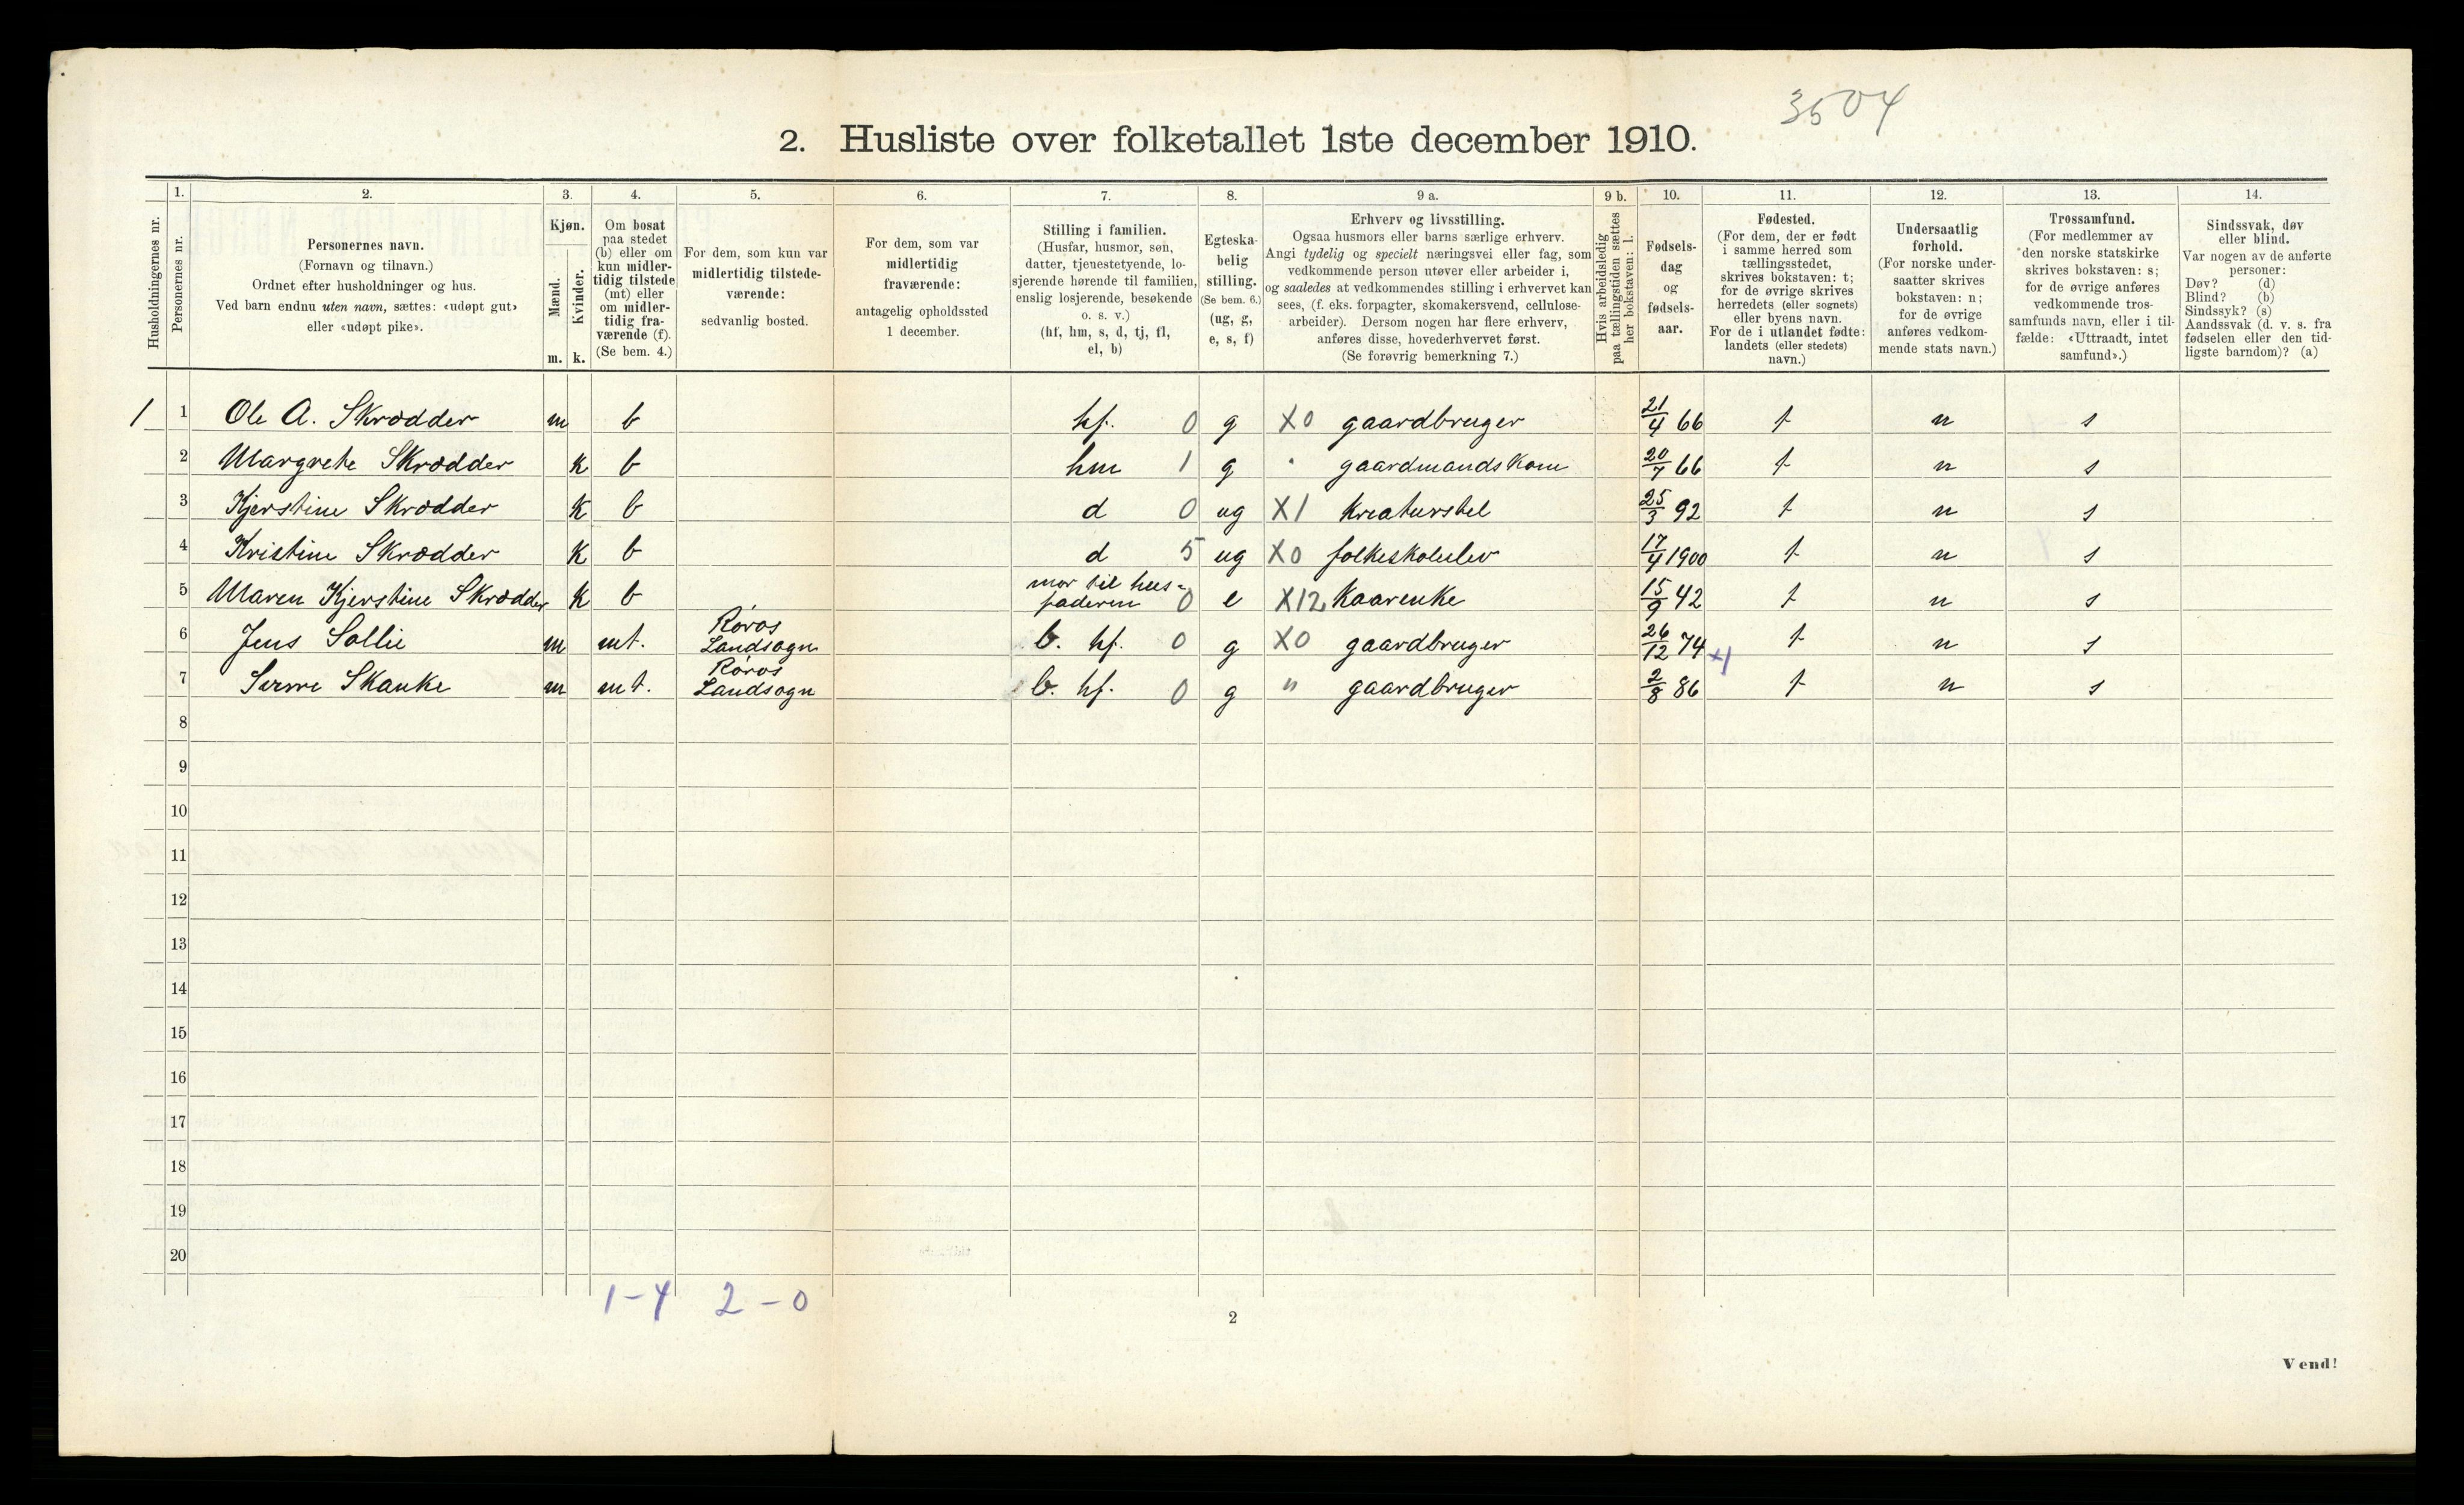 3504
2. Husliste over folketallet 1ste december 1910.
1. 2. 3. 4. 5. 6. 7. 8. 9 a. 9 b. 10. 11. 12. 13. 14.
Husholdningernes nr.
Personernes nr.
Personernes navn.
(Fornavn og tilnavn.)
Ordnet efter husholdninger og hus.
Ved barn endnu uten navn, sættes: «udøpt gut»
eller «udøpt pike».
Kjøn.
Mænd.
Kvinder.
m. k.
Om bosat
paa stedet
(b) eller om
kun midler-
tidig tilstede
(mt) eller
om midler-
tidig fra-
værende (f).
(Se bem. 4.)
For dem, som kun var
midlertidig tilstede-
værende:
sedvanlig bosted.
For dem, som var
midlertidig
fraværende:
antagelig opholdssted
1 december.
Stilling i familien.
(Husfar, husmor, søn,
datter, tjenestetyende, lo-
sjerende hørende til familien,
enslig losjerende, besøkende
o. s. v.)
(hf, hm, s, d, tj, fl,
el, b)
Egteska-
belig
stilling.
(Se bem. 6.)
(ug, g,
e, s, f)
Erhverv og livsstilling.
Ogsaa husmors eller barns særlige erhverv.
Angi tydelig og specielt næringsvei eller fag, som
vedkommende person utøver eller arbeider i,
og saaledes at vedkommendes stilling i erhvervet kan
sees, (f. eks. forpagter, skomakersvend, cellulose-
arbeider). Dersom nogen har flere erhverv,
anføres disse, hovederhvervet først.
(Se forøvrig bemerkning 7.)
Hvis arbeidsledig
paa tællingstiden sættes
her bokstaven: l.
Fødsels-
dag
og
fødsels-
aar.
Fødested.
(For dem, der er født
i samme herred som
tællingsstedet,
skrives bokstaven: t;
for de øvrige skrives
herredets (eller sognets)
eller byens navn.
For de i utlandet fødte:
landets (eller stedets)
navn.)
Undersaatlig
forhold.
(For norske under-
saatter skrives
bokstaven: n;
for de øvrige
anføres vedkom-
mende stats navn.)
Trossamfund.
(For medlemmer av
den norske statskirke
skrives bokstaven: s;
for de øvrige anføres
vedkommende tros-
samfunds navn, eller i til-
fælde: «Uttraadt, intet
samfund».)
Sindssvak, døv
eller blind.
Var nogen av de anførte
personer:
Døv? (d)
Blind? (b)
Sindssyk? (s)
Aandssvak (d. v. s. fra
fødselen eller den tid-
ligste barndom)? (a)
1 1 Ole A. Skrødder m b hf. 0 g X0 gaardbruger 21/4 66 t n s
2 Margrete Skrødder k b hm 1 g " gaardmandskone 20/7 66 t n s
3 Kjerstine Skrødder k b d 0 ug X1 kreaturstel 25/3 92 t n s
4 Kristine Skrødder k b d 5 ug X0 folkeskoleelev 17/4 1900 t n s
5 Maren Kjerstine Skrødder k b mor til hus-
faderen 0 e X12 Kaarenke 15/9 42 t n s
6 Jens Sollie m mt. Røros
Landsogn b. hf. 0 g X0 gaardbruger 26/12 74 t n s
x1
7 Skanke m mt. Røros
Landsogn b. hf. 0 g " gaardbruger 2/8 86 t n s
8
9
10
11
12
13
14
15
16
17
18
19
20
1-4 2-0
2
Vend!